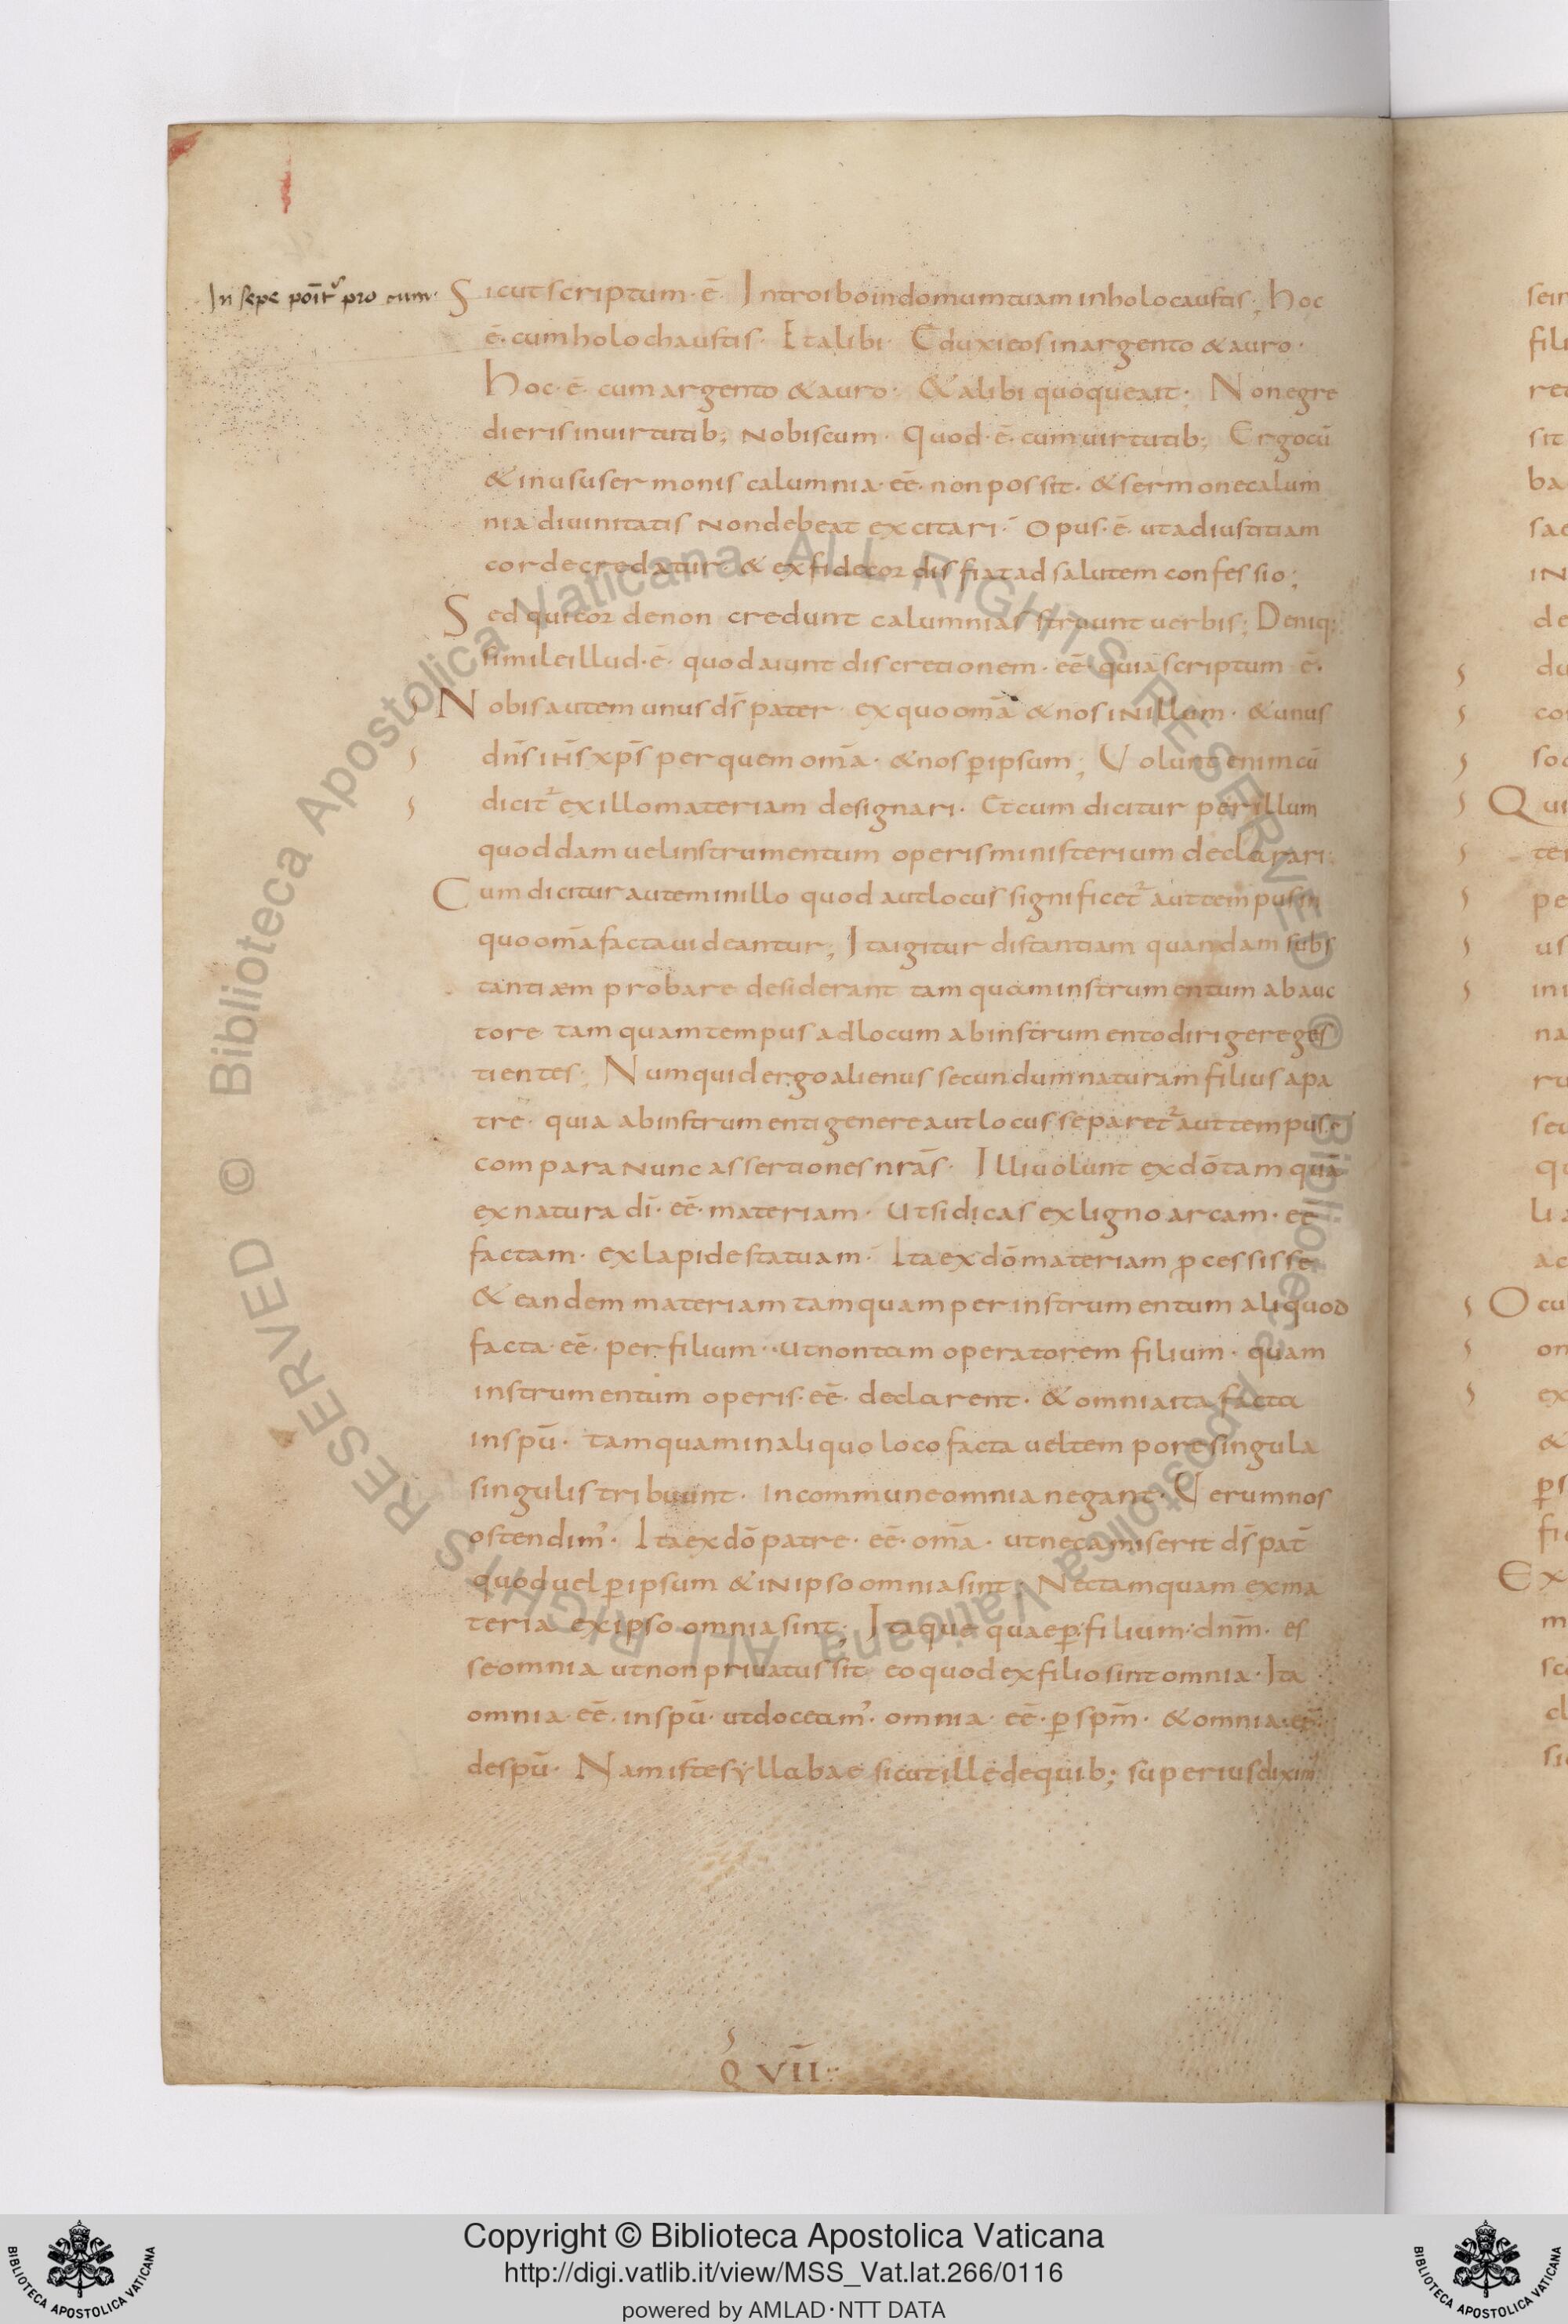 In sepe poit᷑ pro cum·
Sicut scriptum·ē· Introibo in domum tuam in holocaustis; hoc
ē· cum holochaustis· Et alibi· Eduxit eos in argento & auro·
hoc·ē· cum argento & auro· & alibi quoque ait· Non egre
dieris in uirtutib; nobiscum· quod·ē· cum uirtutib; Ergo cū
& in usu sermonis calumnia·eē· non possit· & sermone calum
nia diuinitatis non debeat excitari· opus·ē· ut ad iustitiam
corde credatur· & ex fide cordis fiat ad salutem confessio;
Sed qui corde non credunt calumnias struunt uerbis; Deniq;
simile illud·ē· quod aiunt discretionem·eē· quia scriptum ē·
Nobis autem unus ds̄ pater· ex quo om̄a & nos in illum· & unus
dn̄s ih̄s xp̄s per quem om̄a· & nos ꝑ ipsum; Uolunt enim cū
dicit᷑ ex illo materiam designari· Et cum dicitur per illum
quoddam uel instrumentum operis ministerium declarari·
Cum dicitur autem in illo quod aut locus significet᷑ aut tempus in
quo om̄a facta uideantur; Ita igitur distantiam quandam subs
tantiæm probare desiderant tamquam instrumentum ab auc
tore tamquam tempus ad locum ab instrumento dirigere ges
tientes; Numquid ergo alienus secundum naturam filius a pa
tre· quia ab instrumenti genere aut locus separet᷑ aut tempus &
compara nunc assertiones nrās· Illi uolunt ex dō tamquā
ex natura dī·eē· materiam· Ut si dicas ex ligno arcam· et
factam· ex lapide statuam· Ita ex dō materiam ꝓcessisse
& eandem materiam tamquam per instrumentum aliquod
facta·eē· per filium· ut non tam operatorem filium· quam
instrumentum operis·eē· declarent· & omnia ita facta
in spū· tamquam in aliquo loco facta uel tempore singula
singulis tribuunt· in commune omnia negant· Uerum nos
ostendim᾽· Ita ex dō patre·eē· om̄a· ut nec amiserit ds̄ pat̄
quod uel ꝑ ipsum & in ipso omnia sint· Nec tamquam ex ma
teria ex ipso omnia sint; Itaque quae ꝑ filium dnm̄· es
se omnia ut non priuatus sit eo quod ex filio sint omnia· Ita
omnia·eē· in spū· ut doceam᾽· omnia·eē· ꝑ spm̄· & omnia
de spū· Nam iste syllabae sicut ille de quib; superius diximꝰ
Q VII
Copyright © Biblioteca Apostolica Vaticana
http://digi.vatlib.it/view/MSS_Vat.lat.266/0116
powered by AMLAD·NTT DATA
BIBLIOTECA APOSTOLICA VATICANA
BIBLIOTECA APOSTOLICA VATICANA
© Biblioteca Apostolica Vaticana ALL RIGHTS RESERVED © Biblioteca Apostolica Vaticana ALL RIGHTS RESERVED